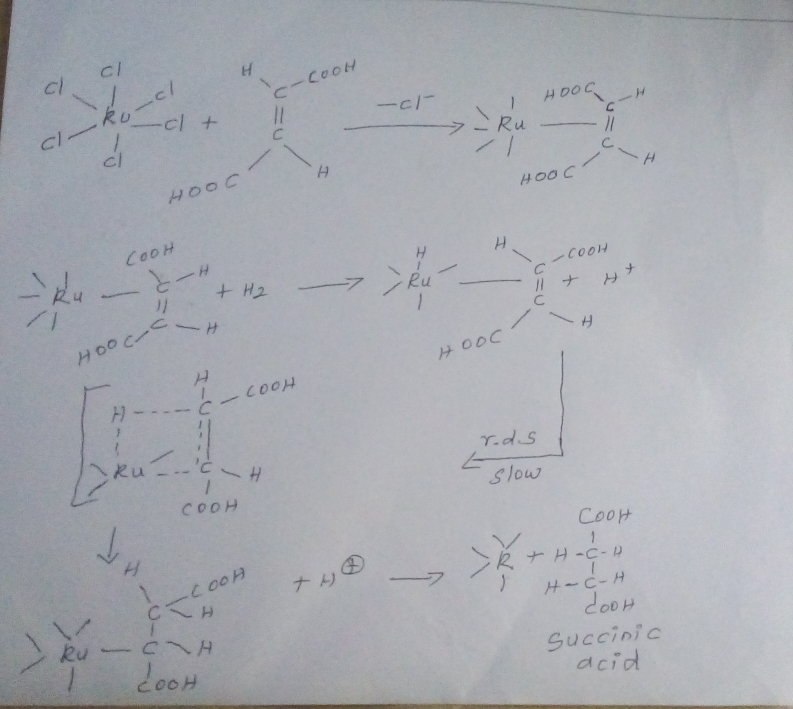 Cl Cl Cl
Ru — Cl + H C COOH
Cl Cl
C
HOOC H
-Cl⁻
Ru HOOC C H
C
HOOC H
COOH
Ru C H + H2
C
HOOC H
H
Ru H C COOH + H⁺
C
HOOC H
r.d.s
slow
H
H C COOH
Ru C H
COOH
H
C COOH
H
Ru C H
COOH
+ H⊕
R + H-C-H
COOH
H-C-H
COOH
Succinic
acid